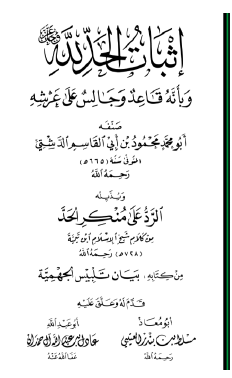 إثبات الحد لله عز وجل
وبأنه قاعد وجالس على عرشه
صنفه
أبو محمد محمود بن أبي القاسم الدشتي
المتوفى سنة (٦٦٥هـ)
رحمه الله
وبذيله
الرد على منكر الحد
من كلام شيخ الإسلام ابن تيمية
(٧٢٨هـ) رحمه الله
من كتابه: بيان تلبيس الجهمية
قدم له وعلق عليه
أبو معاذ أبو عبد الله
مسلط بن بندر العتيبي عادل بن عبد الله آل حمدان
رحمه الله عفا الله عنه